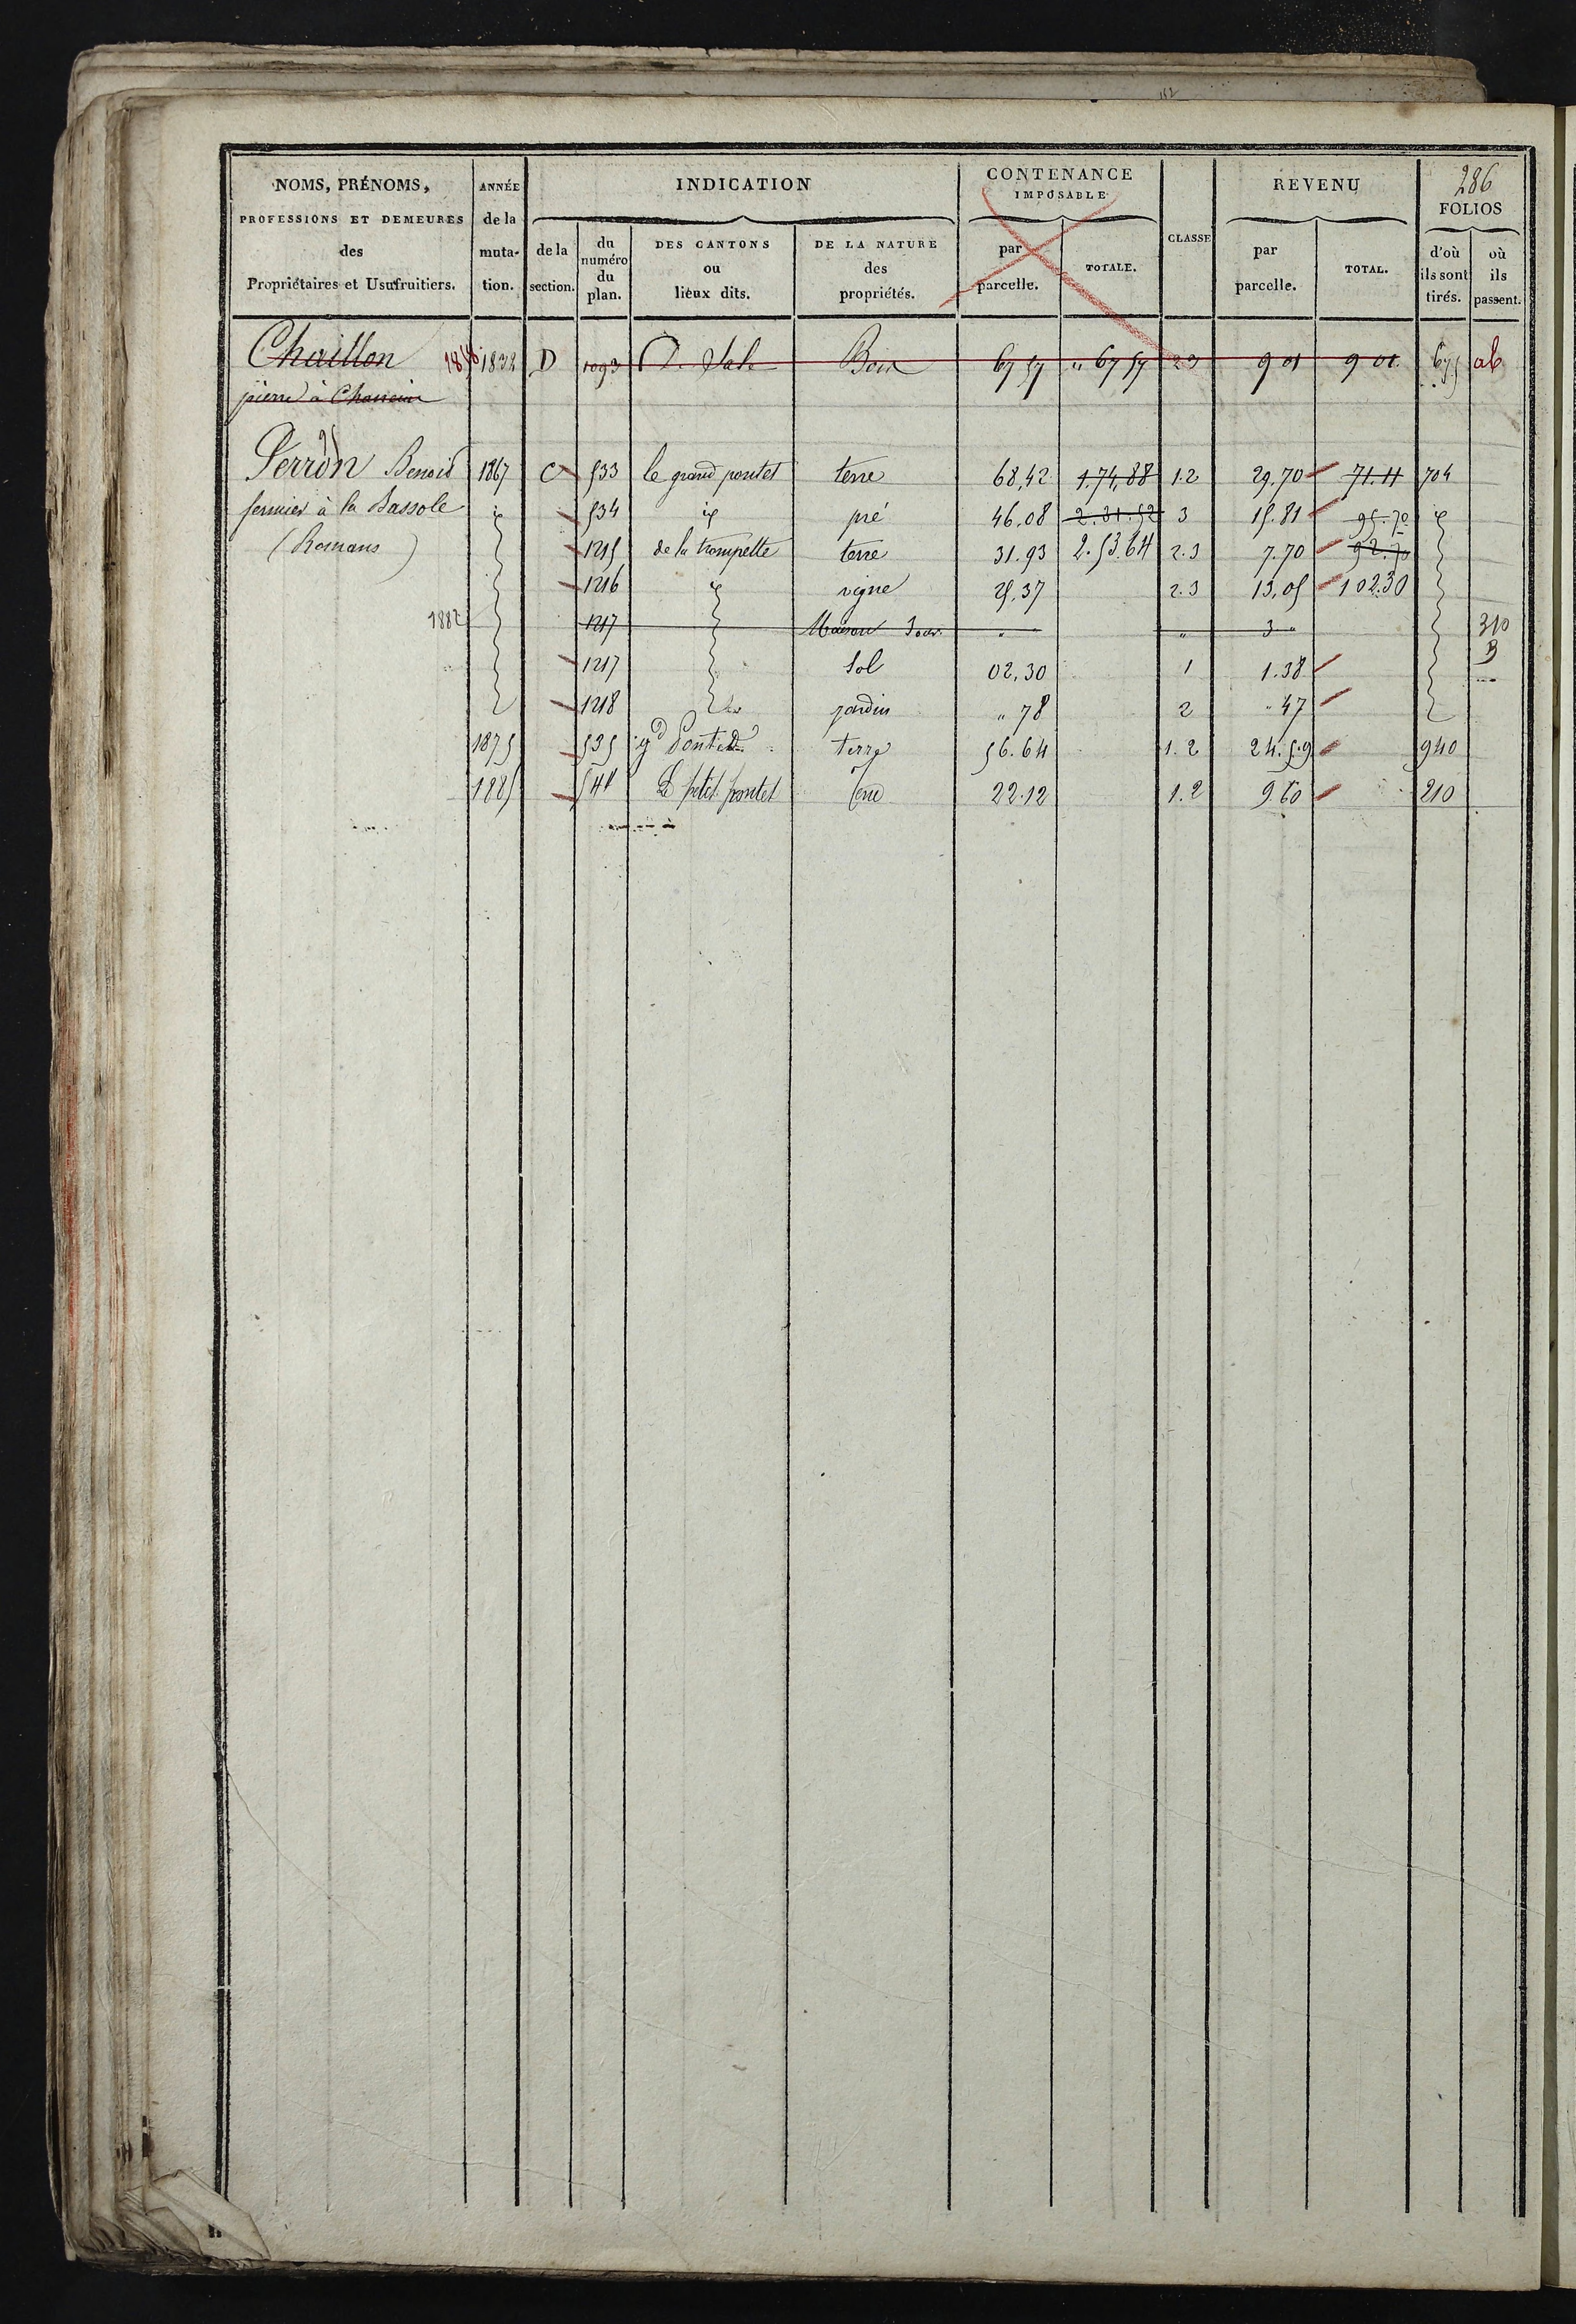 152
286
NOMS, PRÉNOMS, PROFESSIONS ET DEMEURES des Propriétaires et Usufruitiers.
ANNÉE de la muta- tion.
INDICATION
de la section.
du numéro du plan.
DES CANTONS ou lieux dits.
DE LA NATURE des propriétés.
CONTENANCE IMPOSABLE
par parcelle.
TOTALE.
CLASSE
REVENU
par parcelle.
TOTAL.
FOLIOS
d'où ils sont tirés.
où ils passent.
Chaillon 1832 D 1093 Bois 67 57 " 67 57 2.3 9 01 9 01. 675 ab
pierre à
Perron Benoit 1867 C 533 le grand pontet terre 68,42 1.74,88 1.2 29.70 71.11 704
fermier à la Bassole id 534 id pré 46.08 2.31.52 3 15.81 95.70 id
(Romans) 1215 de la trompette terre 31.93 2.53.64 2.3 7.70 92.70
1216 id vigne 25.37 2.3 13,05 102.30
1882 1217 Maison " " 3 " 310
B
1217 Sol 02,30 1 1.38
1218 jardin " 78 2 " 47
1875 535 gd Pontet terre 56.64 1.2 24.59 940
1885 541 Le petit pontet Terre 22.12 1.2 9.60 210